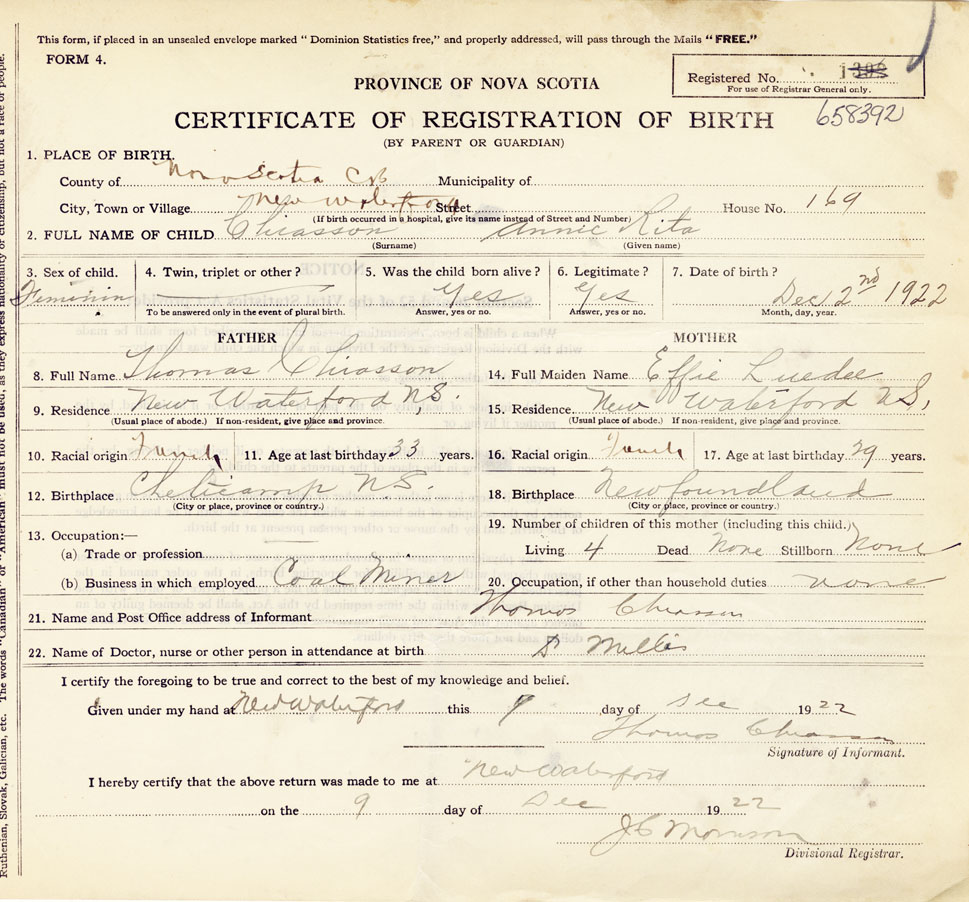 This form, if placed in an unsealed envelope marked " Dominion Statistics free," and properly addressed, will pass through the Mails "FREE."
FORM 4.
Registered No. 1398
For use of Registrar General only.
PROVINCE OF NOVA SCOTIA
658392
CERTIFICATE OF REGISTRATION OF BIRTH
(BY PARENT OR GUARDIAN)
1. PLACE OF BIRTH.
County of Nova Scotia CB Municipality of
City, Town or Village New Waterford Street House No. 169
(If birth occurred in a hospital, give its name instead of Street and Number)
2. FULL NAME OF CHILD Chiasson Annie Rita
(Surname) (Given name)
3. Sex of child. 4. Twin, triplet or other? 5. Was the child born alive? 6. Legitimate? 7. Date of birth?
Feminin Yes Yes Dec 2nd 1922
To be answered only in the event of plural birth. Answer, yes or no. Answer, yes or no. Month, day, year.
FATHER MOTHER
8. Full Name Thomas Chiasson 14. Full Maiden Name Effie Luedee
9. Residence New Waterford N.S. 15. Residence New Waterford N.S,
(Usual place of abode.) If non-resident, give place and province. (Usual place of abode.) If non-resident, give place and province.
10. Racial origin French 11. Age at last birthday 33 years. 16. Racial origin French 17. Age at last birthday 29 years.
12. Birthplace Cheticamp N.S. 18. Birthplace Newfoundland
(City or place, province or country.) (City or place, province or country.)
13. Occupation:— 19. Number of children of this mother (including this child.)
(a) Trade or profession Living 4 Dead None Stillborn None
(b) Business in which employed Coal Miner 20. Occupation, if other than household duties none
21. Name and Post Office address of Informant Thomas Chiasson
22. Name of Doctor, nurse or other person in attendance at birth
I certify the foregoing to be true and correct to the best of my knowledge and belief.
Given under my hand at New Waterford this 9 day of Dec 1922
Thomas Chiasson
Signature of Informant.
I hereby certify that the above return was made to me at New Waterford
on the 9 day of Dec 1922
J C Morrison
Divisional Registrar.
Ruthenian, Slovak, Galician, etc. The words "Canadian" or "American" must not be used, as they express nationality or citizenship, but not a race or people.